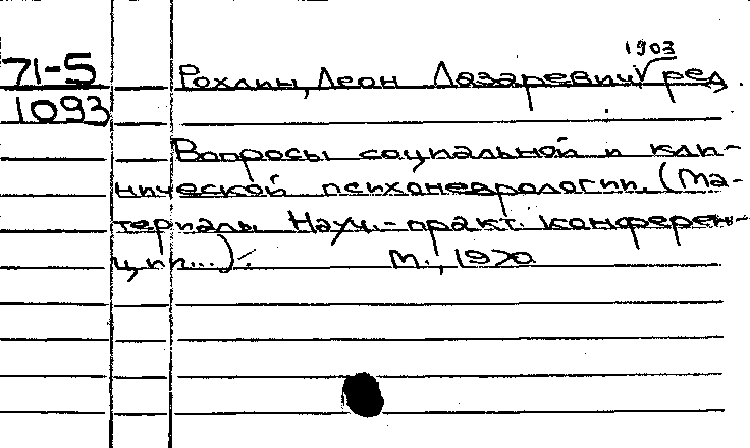 1903
71-5 Рохлин, Леон Лазаревич, ред.
1093
Вопросы социальной и кли-
нической психоневрологии. (Ма-
териалы науч.-практ. конферен-
ции...). М., 1970